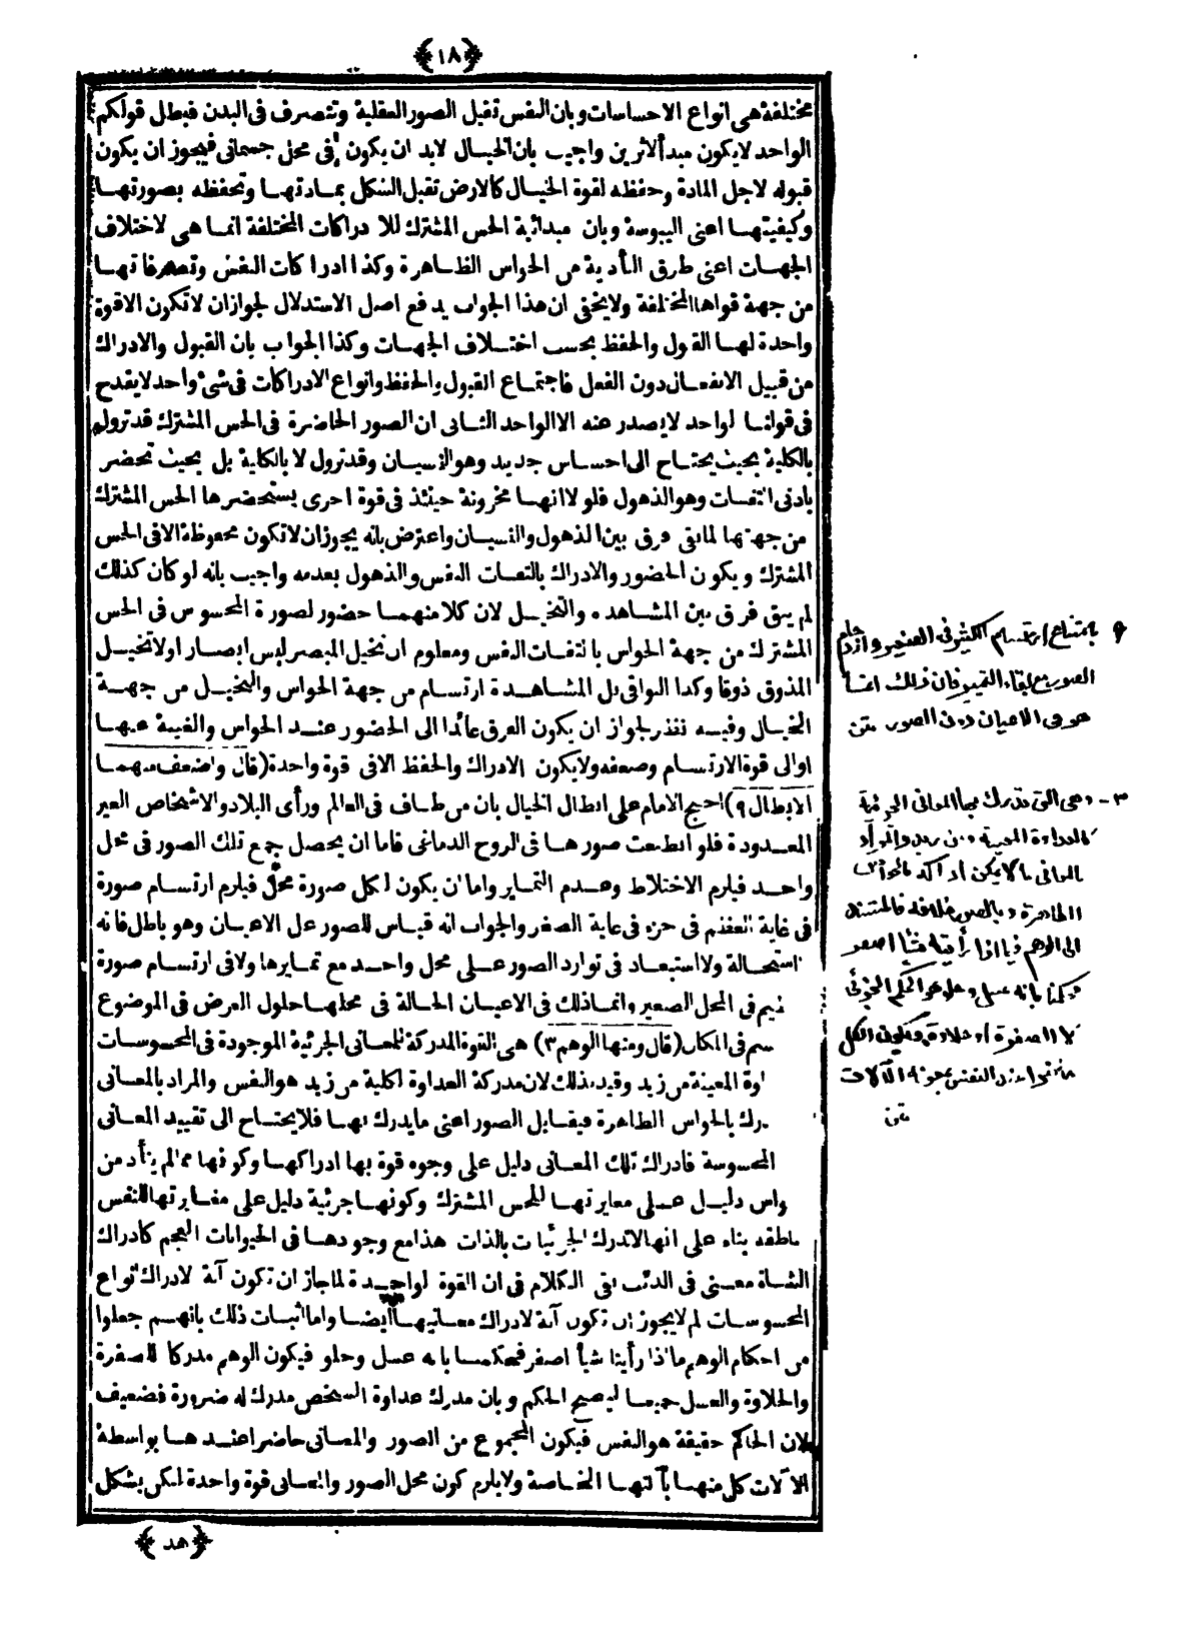 ﴿١٨﴾
مختلفة هى انواع الاحساسات وبان النفس تقبل الصور العقلية وتتصرف فى البدن فبطل قولكم
الواحد لا يكون مبدأ لاثرين واجيب بان الخيال لابد ان يكون فى محل جسمانى فيجوز ان يكون
قبوله لاجل المادة وحفظه لقوة الخيال كالارض تقبل الشكل بمادتها وتحفظه بصورتها
وكيفيتها اعنى اليبوسة وبان مبدائية الحس المشترك للادراكات المختلفة انما هى لاختلاف
الجهات اعنى طرق التأدية من الحواس الظاهرة وكذا ادراكات النفس وتصرفاتها
من جهة قواها المختلفة ولا يخفى ان هذا الجواب يدفع اصل الاستدلال لجواز ان لا تكون الا قوة
واحدة لها القبول والحفظ بحسب اختلاف الجهات وكذا الجواب بان القبول والادراك
من قبيل الانفعال دون الفعل فاجتماع القبول والحفظ وانواع الادراكات فى شئ واحد لا يقدح
فى قولنا الواحد لا يصدر عنه الا الواحد الثانى ان الصور الحاضرة فى الحس المشترك قد تزول
بالكلية بحيث يحتاج الى احساس جديد وهو النسيان وقد تزول لا بالكلية بل بحيث تحضر
بادنى التفات وهو الذهول فلولا انها مخزونة حينئذ فى قوة اخرى يستحضرها الحس المشترك
من جهتها لما بقى فرق بين الذهول والنسيان واعترض بانه يجوز ان لا تكون محفوظة الا فى الحس
المشترك ويكون الحضور والادراك بالتفات النفس والذهول بعدمه واجيب بانه لو كان كذلك
لم يبق فرق بين المشاهدة والتخيل لان كلا منهما حضور لصورة المحسوس فى الحس
المشترك من جهة الحواس بالتفات النفس ومعلوم ان تخيل المبصر ليس ابصارا ولا تخيل
المذوق ذوقا وكذا البواقى بل المشاهدة ارتسام من جهة الحواس والتخيل من جهة
الخيال وفيه نظر لجواز ان يكون الفرق عائدا الى الحضور عند الحواس والغيبة عنها
او الى قوة الارتسام وضعفه ولا يكون الادراك والحفظ الا فى قوة واحدة (قال واضعف منهما
الابطال ٩) احتج الامام على ابطال الخيال بان من طاف فى العالم ورأى البلاد والاشخاص الغير
المعدودة فلو انطبعت صورها فى الروح الدماغى فاما ان يحصل جميع تلك الصور فى محل
واحد فيلزم الاختلاط وعدم التمايز واما ان يكون لكل صورة محل فيلزم ارتسام صورة
فى غاية العظم فى جزء فى غاية الصغر والجواب انه قياس للصور على الاعيان وهو باطل فانه
استحالة ولا استبعاد فى توارد الصور على محل واحد مع تمايزها ولا فى ارتسام صورة
فى المحل الصغير وانما ذلك فى الاعيان الحالة فى محلها حلول العرض فى الموضوع
سم فى المكان (قال ومنها الوهم ٣) هى القوة المدركة للمعانى الجزئية الموجودة فى المحسوسات
اوة المعينة من زيد وقيد بذلك لان مدركة العداوة الكلية من زيد هو النفس والمراد بالمعانى
رك بالحواس الظاهرة فيقابل الصور اعنى ما يدرك بها فلا يحتاج الى تقييد المعانى
المحسوسة فادراك تلك المعانى دليل على وجوه قوة بها ادراكها وكونها مما لم يتأد من
واس دليل على مغايرتها للحس المشترك وكونها جزئية دليل على مغايرتها للنفس
طقه بناء على انها لا تدرك الجزئيات بالذات هذا مع وجودها فى الحيوانات العجم كادراك
الشاة معنى فى الذئب بقى الكلام فى ان القوة الواحدة لما جاز ان تكون آلة لادراك انواع
المحسوسات لم لا يجوز ان تكون آلة لادراك معانيها ايضا واما اثبات ذلك بانهم جعلوا
من احكام الوهم ما اذا رأينا شيأ اصفر فحكمنا بانه عسل وحلو فيكون الوهم مدركا للصفرة
والحلاوة والعسل جميعا ليصح الحكم وبان مدرك عداوة الشخص مدرك له ضرورة فضعيف
لان الحاكم حقيقة هو النفس فيكون المجموع من الصور والمعانى حاضرا عندها بواسطة
الآلات كل منها بآلتها الخاصة ولا يلزم كون محل الصور والمعانى قوة واحدة لكن يشكل
﴿هذ﴾
٩ بامتناع ارتسام الكثير فى الصغير وازدحام
الصور مع بقاء التميز فان ذلك انما
هو فى الاعيان دون الصور متن
٣- وهى التى تدرك بها المعانى الجزئية
كالعداوة المعينة من زيد والمراد
بالمعانى ما لا يمكن ادراكه بالحواس
الظاهرة وبالصور خلافه فالمستند
الى الوهم فيما اذا رأينا شيئا اصفر
فحكمنا بانه عسل وحلو هو الحكم الجزئى
لا الصفرة او حلاوة ويكون الكل
عند النفس بمعونة الآلات
متن